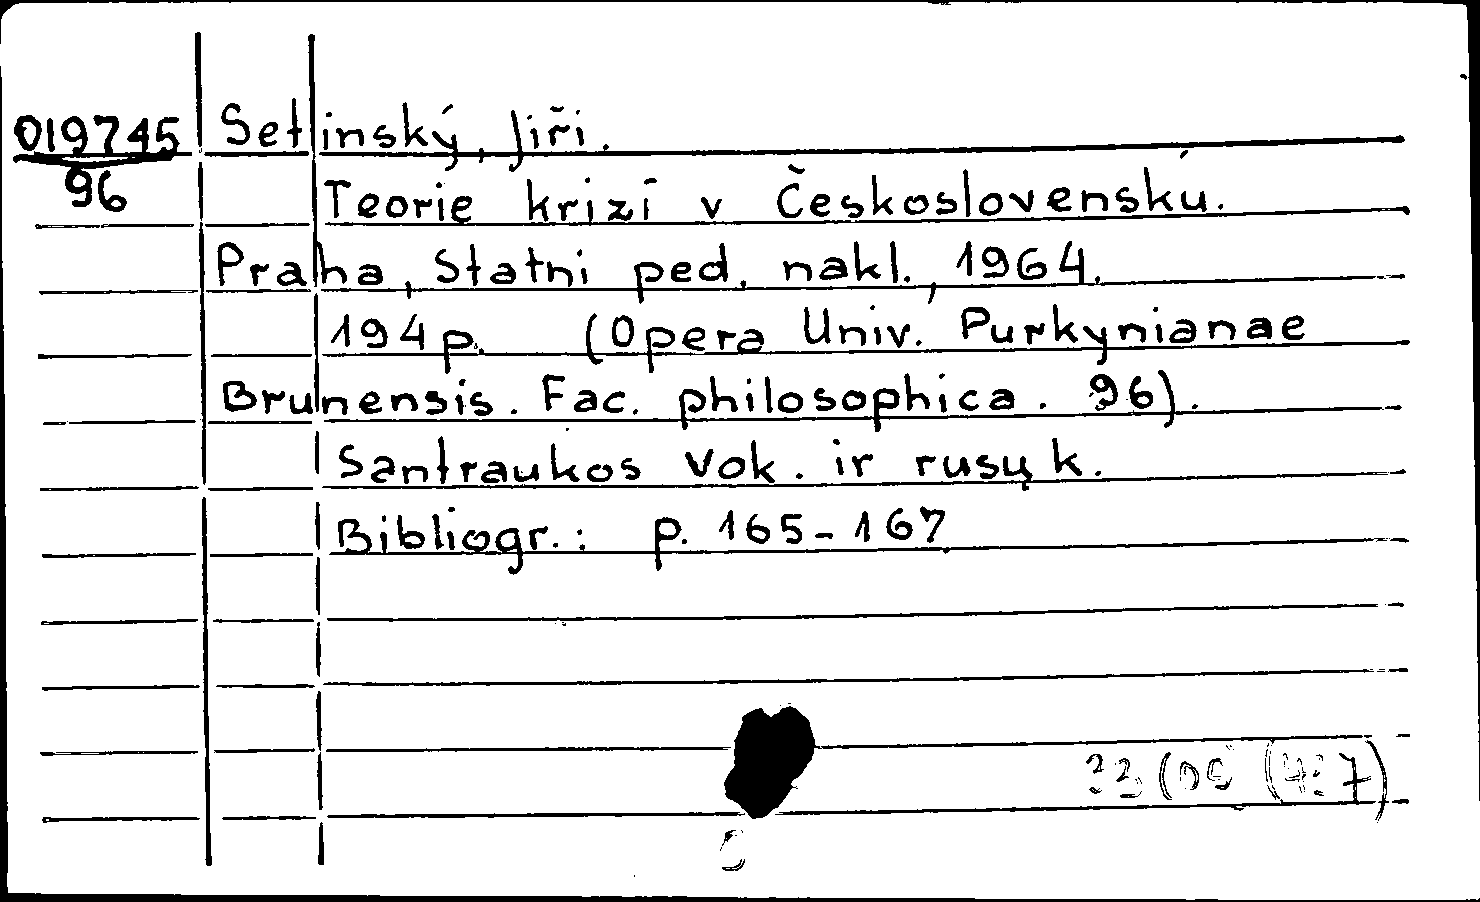 019745 Setinský, Jiří.
96 Teorie krizí v Československú.
Praha, Statni ped. nakl., 1964.
194 p. (Opera Univ. Purkynianae
Brunensis. Fac. philosophica. 96).
Santraukos vok. ir rusų k.
Bibliogr.: p. 165-167